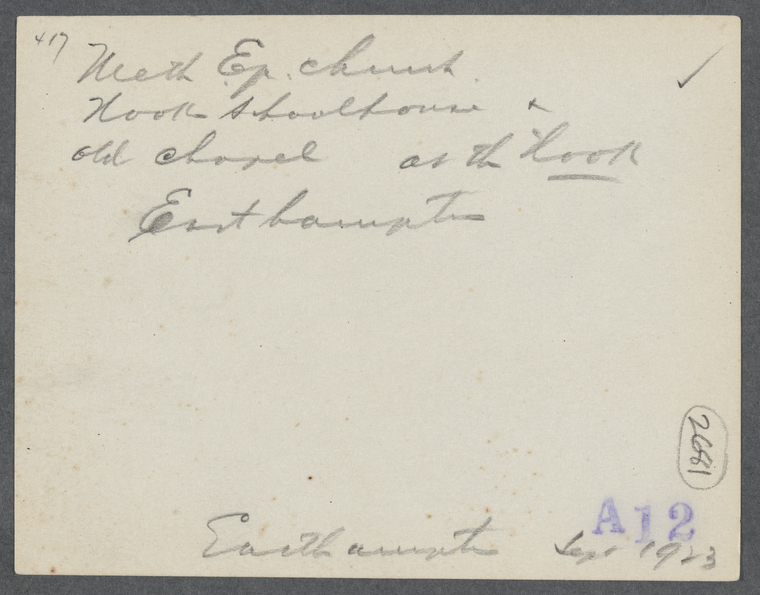 417
Meth. Ep. church.
Hook schoolhouse &
old chapel at the "Hook
Easthampton
2681
A12
Easthampton Sept 1923